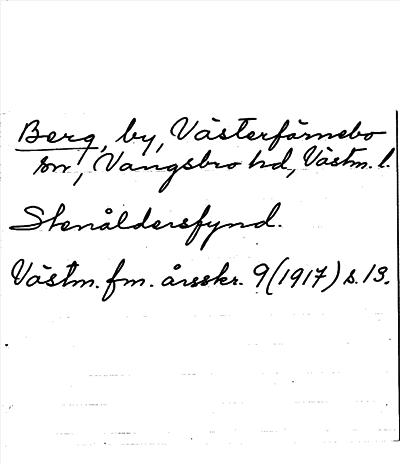 Berg, by, Västerfärnebo
sn, Vangsbro hd, Västm. l.
Stenåldersfynd.
Västm. fm. årsskr. 9 (1917) s. 13.